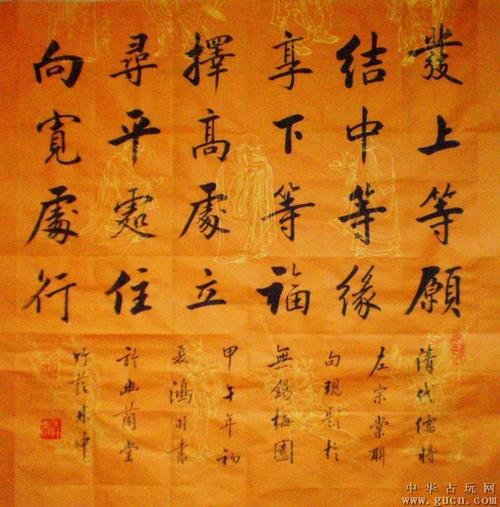 發上等願
結中等緣
享下等福
擇高處立
尋平處住
向寬處行
清代儒將
左宗棠聯
句現題於
無錫梅園
甲午年初
夏鴻羽書
於幽蘭堂
竹林中
中华古玩网
www.gucn.com